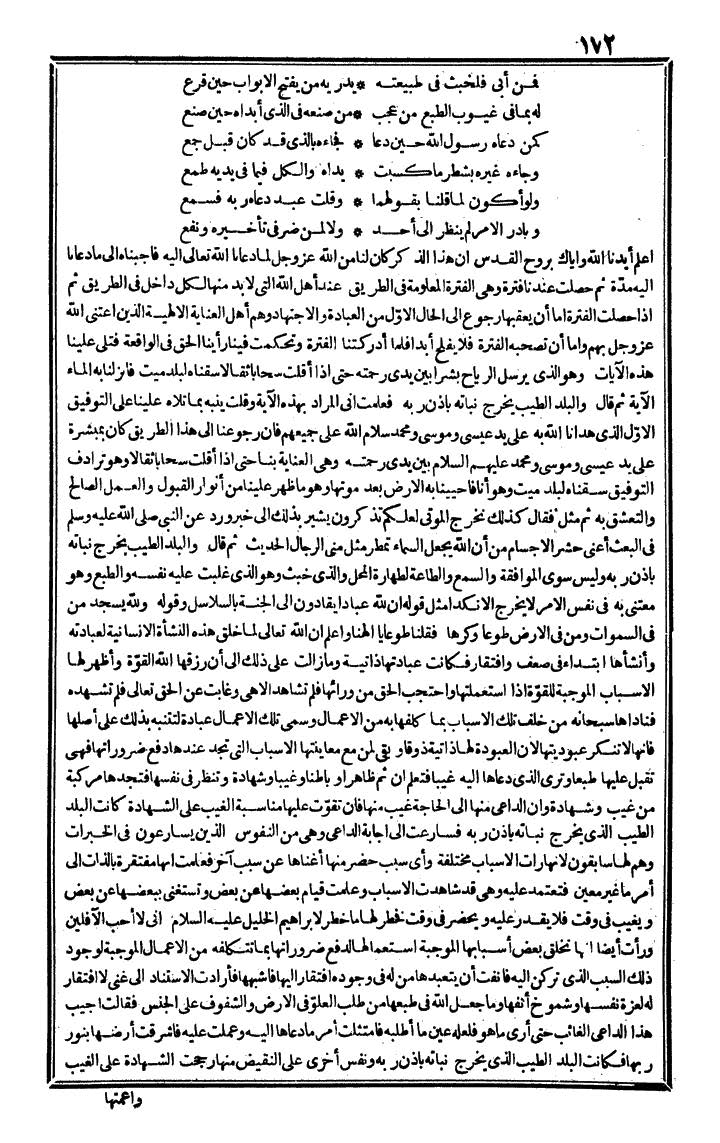 ١٧٢
فمن أبى فلخبث فى طبيعته * يدريه من يفتح الابواب حين قرع
له بما فى غيوب الطبع من عجب * من صنعه فى الذى أبداه حين صنع
كمن دعاه رسول الله حين دعا * فجاءه بالذى قد كان قبل جمع
وجاءه غيره بشطر ما كسبت * يداه والكل فيما فى يديه طمع
ولو أكون لما قلنا بقولهما * وقلت عبد دعاه ربه فسمع
وبادر الامر لم ينظر الى أحد * ولا لمن ضر فى تأخيره ونفع
اعلم أيدنا الله واياك بروح القدس ان هذا الذكر كان لنا من الله عز وجل لما دعانا الله تعالى اليه فاجبناه الى ما دعانا
اليه مدّة ثم حصلت عندنا فترة وهى الفترة المعلومة فى الطريق عند أهل الله التى لا بد منها لكل داخل فى الطريق ثم
اذا حصلت الفترة اما أن يعقبها رجوع الى الحال الاوّل من العبادة والاجتهاد وهم أهل العناية الالهية الذين اعتنى الله
عز وجل بهم واما أن تصحبه الفترة فلا يفلح أبدا فلما أدركتنا الفترة وتحكمت فينا رأينا الحق فى الواقعة فتلى علينا
هذه الآيات وهو الذى يرسل الرياح بشرا بين يدى رحمته حتى اذا أقلت سحابا ثقالا سقناه لبلد ميت فانزلنا به الماء
الآية ثم قال والبلد الطيب يخرج نباته باذن ربه فعلمت انى المراد بهذه الآية وقلت ينبه بما تلاه علينا على التوفيق
الاوّل الذى هدانا الله به على يد عيسى وموسى ومحمد سلام الله على جميعهم فان رجوعنا الى هذا الطريق كان بمبشرة
على يد عيسى وموسى ومحمد عليهم السلام بين يدى رحمته وهى العناية بنا حتى اذا أقلت سحابا ثقالا وهو ترادف
التوفيق سقناه لبلد ميت وهو أنا فاحيينا به الارض بعد موتها وهو ما ظهر علينا من أنوار القبول والعمل الصالح
والتعشق به ثم مثل فقال كذلك نخرج الموتى لعلكم تذكرون يشير بذلك الى خبر ورد عن النبى صلى الله عليه وسلم
فى البعث أعنى حشر الاجسام من أن الله يجعل السماء تمطر مثل منى الرجال الحديث ثم قال والبلد الطيب يخرج نباته
باذن ربه وليس سوى الموافقة والسمع والطاعة لطهارة المحل والذى خبث وهو الذى غلبت عليه نفسه والطبع وهو
معتنى به فى نفس الامر لا يخرج الا نكدا مثل قوله ان لله عبادا يقادون الى الجنة بالسلاسل وقوله ولله يسجد من
فى السموات ومن فى الارض طوعا وكرها فقلنا طوعا يا الهنا واعلم ان الله تعالى لما خلق هذه النشأة الانسانية لعبادته
وأنشأها ابتداء فى ضعف وافتقار فكانت عبادتها ذاتية وما زالت على ذلك الى أن رزقها الله القوّة وأظهر لها
الاسباب الموجبة للقوّة اذا استعملتها واحتجب الحق من ورائها فلم تشاهد الا هى وغابت عن الحق تعالى فلم تشهده
فناداها سبحانه من خلف تلك الاسباب بما كلفها به من الاعمال وسمى تلك الاعمال عبادة لتتنبه بذلك على أصلها
فانها لا تنكر عبوديتها لان العبودة لها ذاتية ذوقا وبقى لمن مع معاينتها الاسباب التى تجد عندها دفع ضروراتها فهى
تقبل عليها طبعا وترى الذى دعاها اليه غيبا فتعلم ان ثم ظاهرا وباطنا وغيبا وشهادة وتنظر فى نفسها فتجدها مركبة
من غيب وشهادة وان الداعى منها الى الحاجة غيب منها فان تقوّت عليها مناسبة الغيب على الشهادة كانت البلد
الطيب الذى يخرج نباته باذن ربه فسارعت الى اجابة الداعى وهى من النفوس الذين يسارعون فى الخيرات
وهم لها سابقون لانها رات الاسباب مختلفة وأى سبب حضر منها أغناها عن سبب آخر فعلمت انها مفتقرة بالذات الى
أمر ما غير معين فتعتمد عليه وهى قد شاهدت الاسباب وعلمت قيام بعضها عن بعض وتستغنى ببعضها عن بعض
ويغيب فى وقت فلا يقدر عليه ويحضر فى وقت فخطر لها ما خطر لابراهيم الخليل عليه السلام انى لا أحب الآفلين
ورأت أيضا انها تخلق بعض أسبابها الموجبة استعمالها لدفع ضروراتها بما تتكلفه من الاعمال الموجبة لوجود
ذلك السبب الذى تركن اليه فانفت أن يتعبدها من له فى وجوده افتقار اليها فاشبهها فأرادت الاستناد الى غنى لا افتقار
له لعزة نفسها وشموخ أنفها وما جعل الله فى طبعها من طلب العلوّ فى الارض والشفوف على الجنس فقالت اجيب
هذا الداعى الغائب حتى أرى ما هو فلعله عين ما أطلبه فامتثلت أمر ما دعاها اليه وعملت عليه فاشرقت أرضها بنور
ربها فكانت البلد الطيب الذى يخرج نباته باذن ربه ونفس أخرى على النقيض منها رجحت الشهادة على الغيب
واعمتها